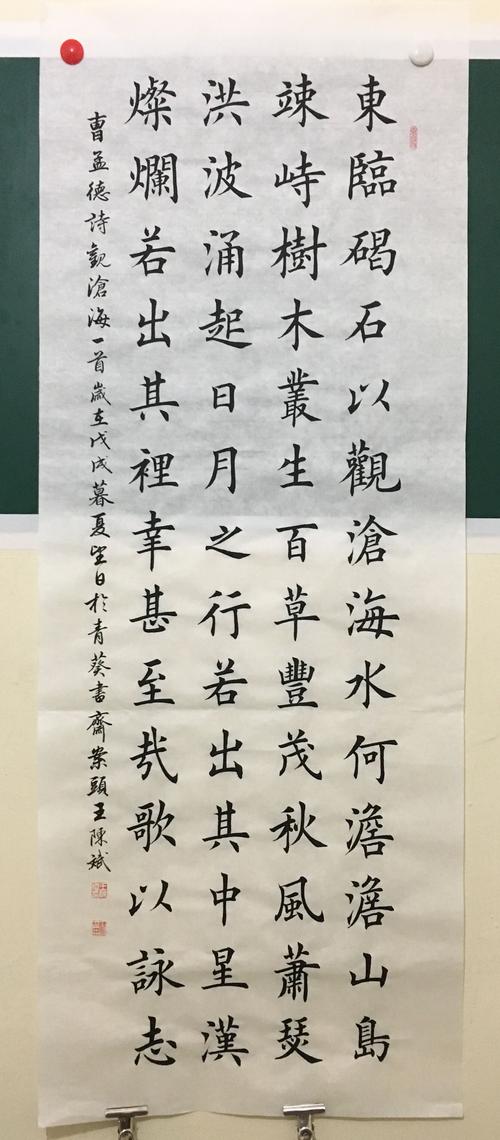 東臨碣石以觀滄海水何澹澹山島
竦峙樹木叢生百草豐茂秋風蕭瑟
洪波涌起日月之行若出其中星漢
燦爛若出其裡幸甚至哉歌以詠志
曹孟德詩觀滄海一首歲在戊戌暮夏望日於青葵書齋案頭王陳斌